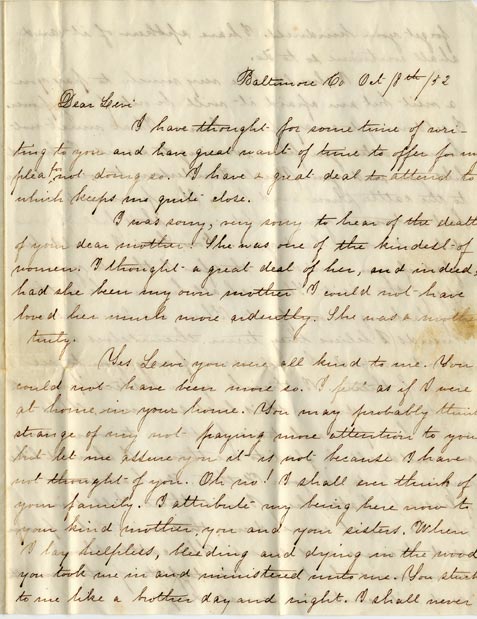 Baltimore Co Oct /8th /52
Dear Levi
I have thought for some time of wri-
ting to you and have great want of time to offer for m
plea for not doing so. I have a great deal to attend to
which keeps me quite close.
I was sorry, very sorry to hear of the death
of your dear mother! She was one of the kindest of
women. I thought a great deal of her, and indeed,
had she been my own mother I could not have
loved her much more ardently. She was a mother
truly.
Yes Levi you were all kind to me. You
could not have been more so. I felt as if I were
at home in your home. You may probably think
strange of my not paying more attention to you
but let me assure you it is not because I have
not thought of you. Oh no! I shall ever think of
your family. I attribute my being here now to
your kind mother, you and your sisters. When
I lay helpless, bleeding and dying in the wood
you took me in and ministered unto me. You stuck
to me like a brother day and night. I shall never